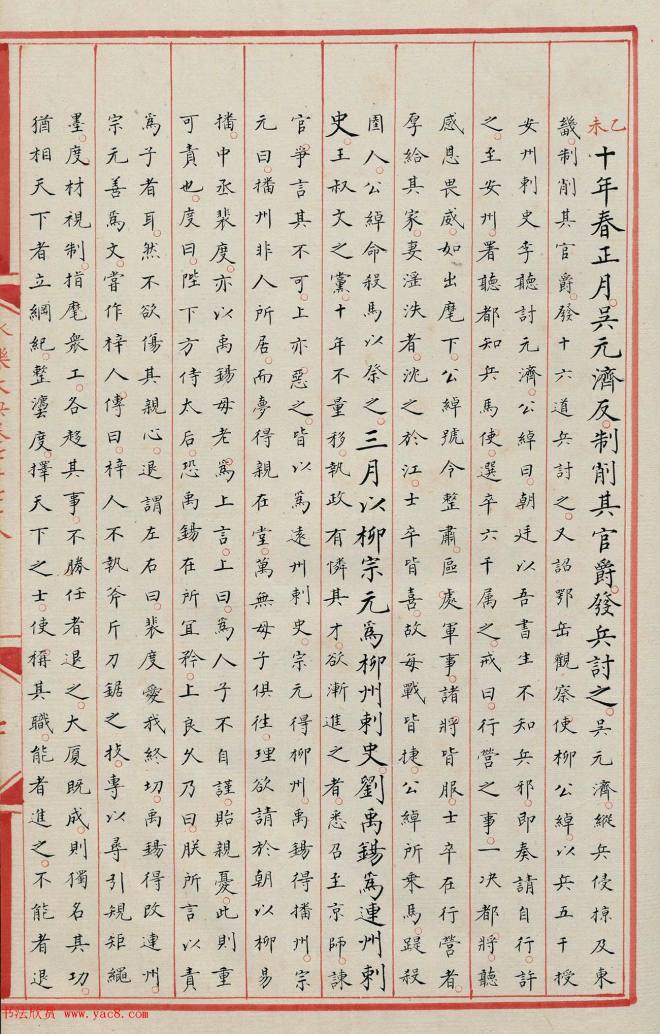 乙未十年春正月吳元濟反制削其官爵發兵討之吳元濟縱兵侵掠及東
畿制削其官爵發十六道兵討之又詔鄂岳觀察使柳公綽以兵五千授
安州刺史李聽討元濟公綽曰朝廷以吾書生不知兵邪即奏請自行許
之至安州署聽都知兵馬使選卒六千属之戒曰行營之事一决都將聽
感恩畏威如出麾下公綽號令整肅區處軍事諸將皆服士卒在行營者
厚給其家妻淫泆者沈之於江士卒皆喜故每戰皆捷公綽所乘馬踶殺
圉人公綽命殺馬以祭之三月以柳宗元為柳州刺史劉禹錫為連州刺
史王叔文之黨十年不量移執政有憐其才欲漸進之者悉召至京師諫
官爭言其不可上亦惡之皆以為遠州刺史宗元得柳州禹錫得播州宗
元曰播州非人所居而夢得親在堂萬無母子俱往理欲請於朝以柳易
播中丞裴度亦以禹錫母老為上言上曰為人子不自謹貽親憂此則重
可責也度曰陛下方侍太后恐禹錫在所宜矜上良久乃曰朕所言以責
為子者耳然不欲傷其親心退謂左右曰裴度愛我終切禹錫得改連州
宗元善為文嘗作梓人傳曰梓人不執斧斤刀鋸之技專以尋引規矩繩
墨度材視制指麾眾工各趨其事不勝任者退之大厦既成則獨名其功
猶相天下者立綱紀整灋度擇天下之士使稱其職能者進之不能者退
书法欣赏 www.yac8.com